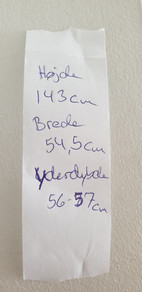 Højde
143 cm
Brede
54,5 cm
Yderdybde
56-57 cm